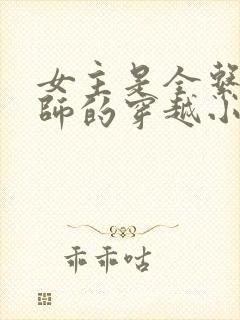 女主是全系
师的穿越小
乖乖咕